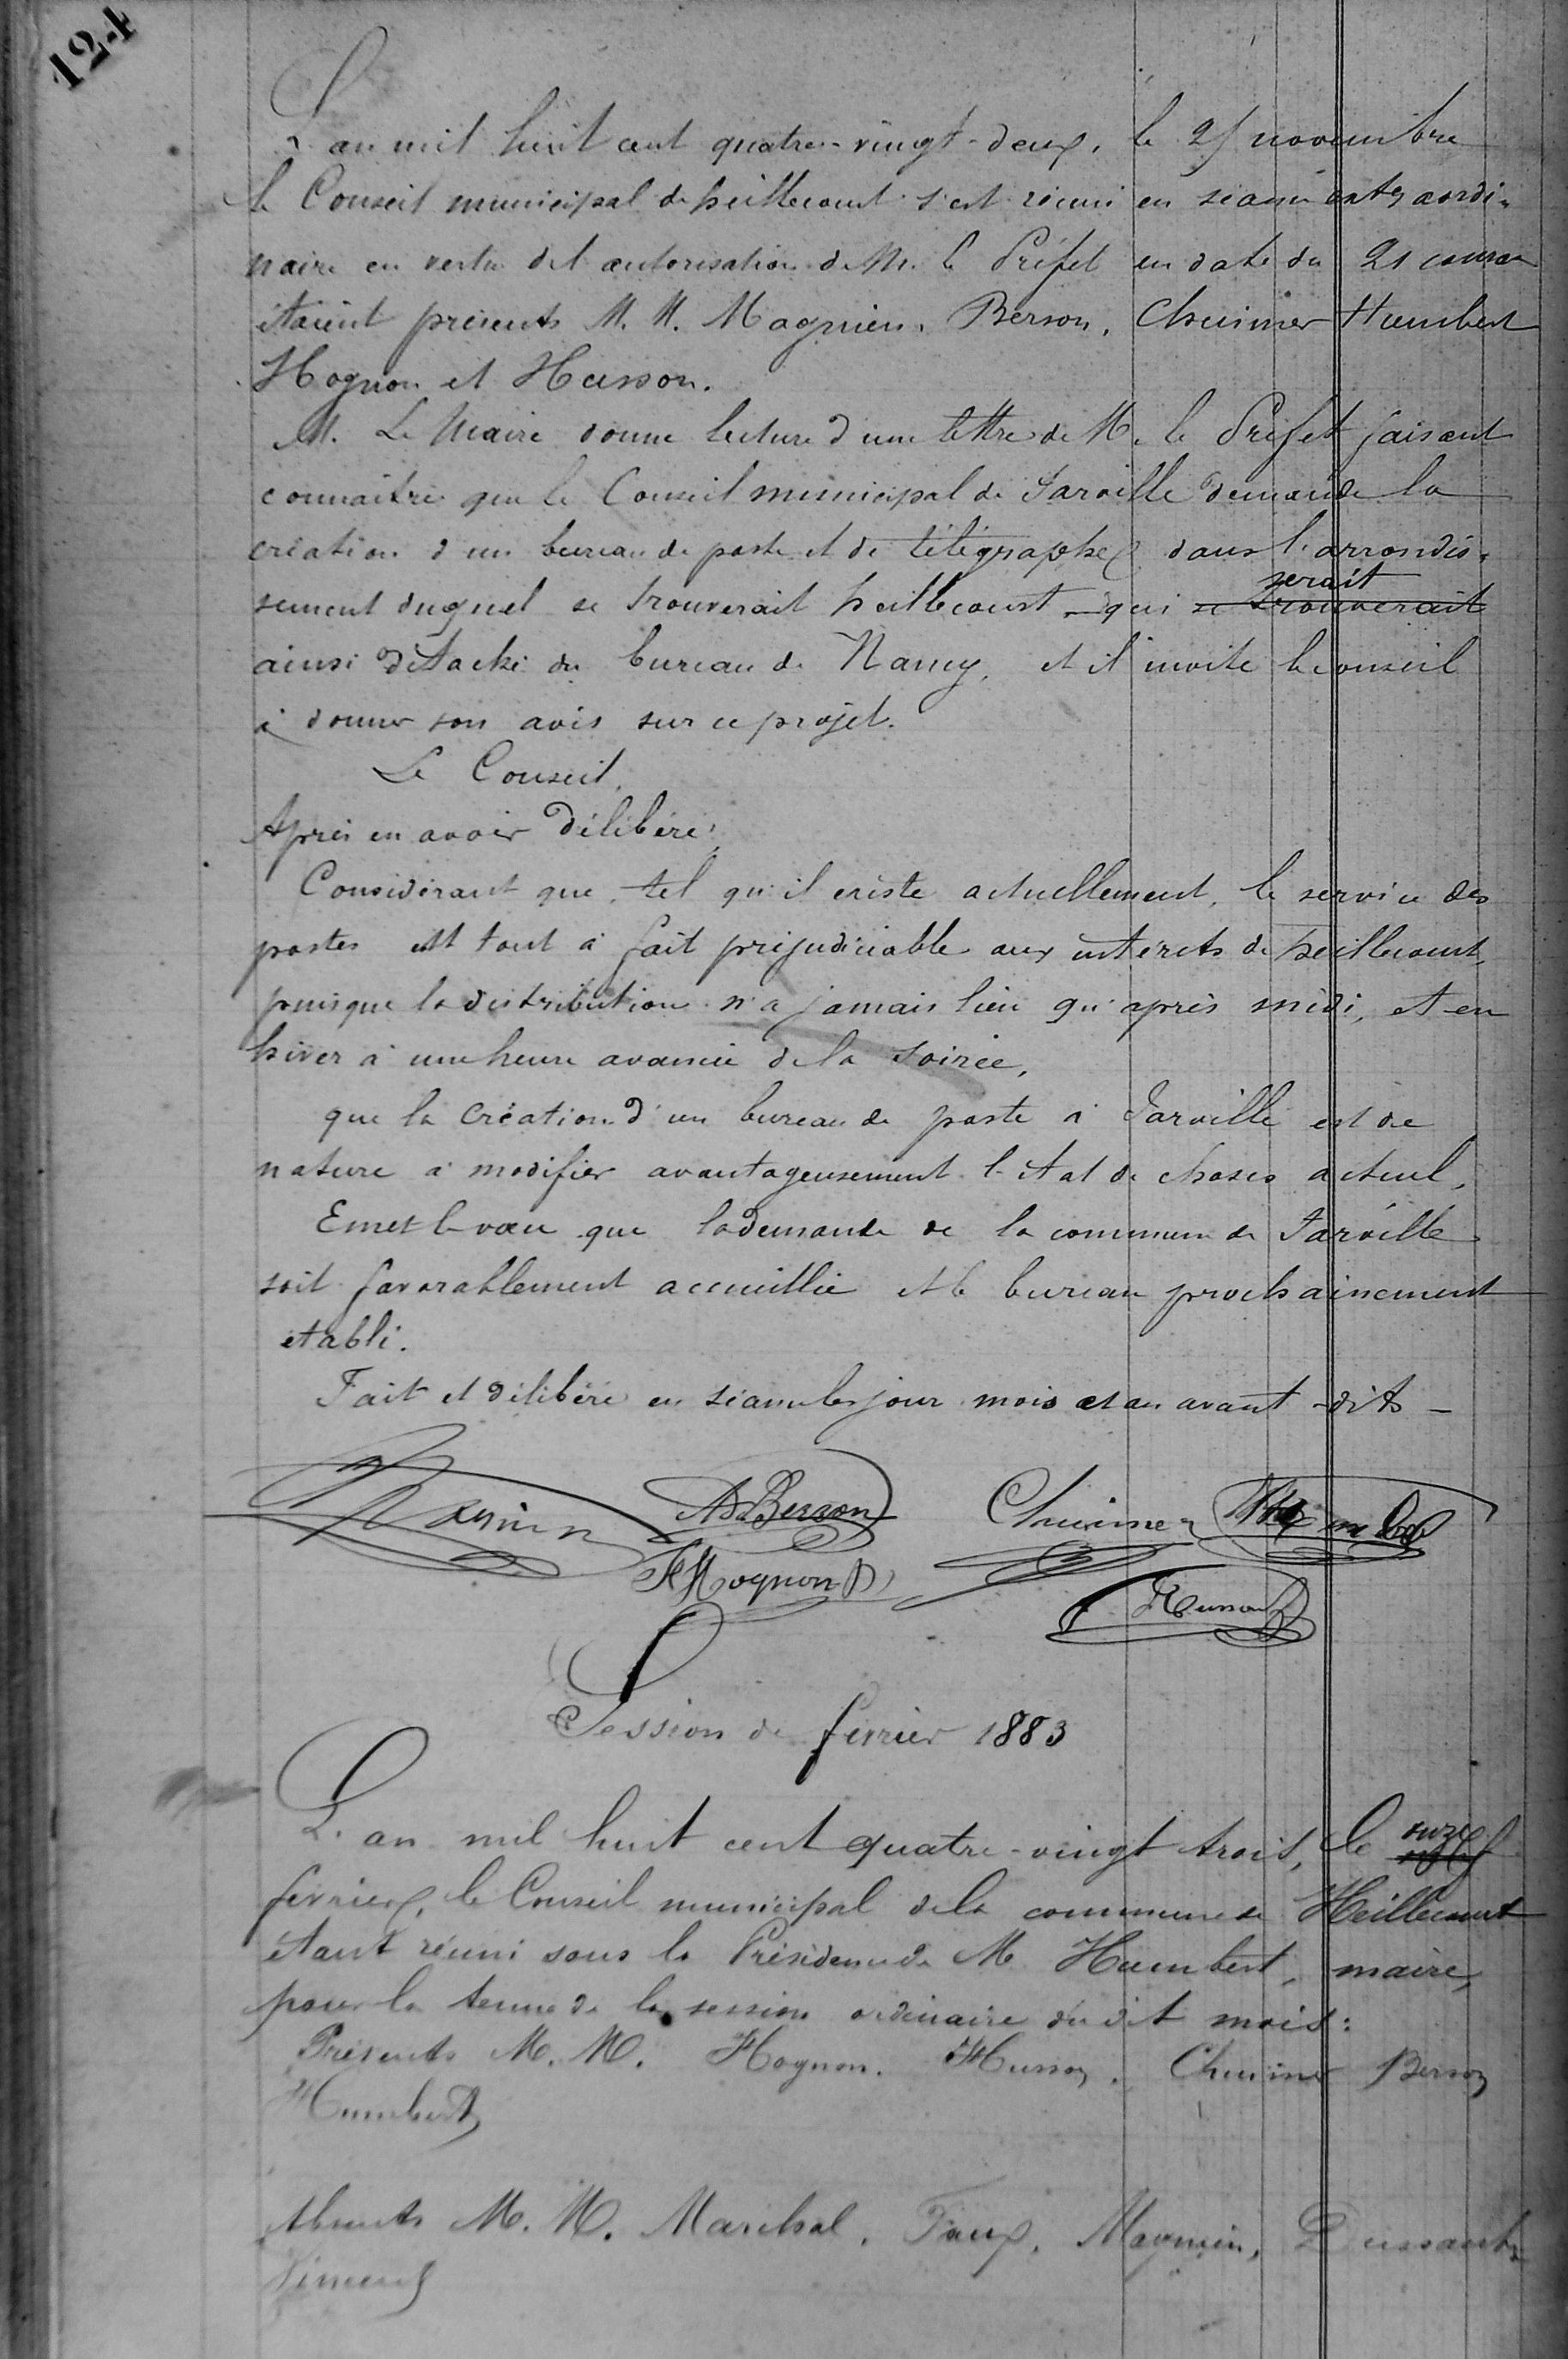 124
L'an mil huit cent quatre-vingt-deux, le 25 novembre
le Conseil municipal de heillecourt s'est réuni en séance extraordi-
naire en vertu de l'autorisation de M. le Préfet en date du 21 courant
étaient présents M. M. Magnien, Berson, Chuimer Humbert
Hognon et Husson.
M. Le Maire donne lecture d'une lettre de M. le Préfet faisant
connaître que le Conseil municipal de Jarville demande la
création d'un bureau de poste et de télégraphe, dans l'arrondis-
serait
sement duquel se trouverait heillecourt - qui se trouverait
ainsi détaché du bureau de Nancy, et il invite le conseil
à donner son avis sur ce projet.
Le Conseil,
Après en avoir délibéré,
Considérant que, tel qu'il existe actuellement, le service des
postes est tout à fait préjudiciable aux intérêts de heillecourt,
puisque la distribution n'a jamais lieu qu'après midi, et en
hiver à une heure avancée de la soirée,
que la création d'un bureau de poste à Jarville est de
nature à modifier avantageusement l'état de choses actuel,
Emet le vœu que la demande de la commune de Jarville
soit favorablement accueillie et le bureau prochainement
établi.
Fait et délibéré en séance les jour mois et an avant -dits -
Magnien ABerson Chuimer Humbert
Hognon
Husson
Session de février 1883
L'an mil huit cent quatre-vingt trois, le onze
février, le Conseil municipal de la commune de Heillecourt
étant réuni sous la Présidence de M. Humbert, maire,
pour la tenue de la session ordinaire du dit mois:
Présents M. M. Hognon. Husson, Chuimer Berson
Humbert
Absents M. M. Marchal, Faux, Magnien,